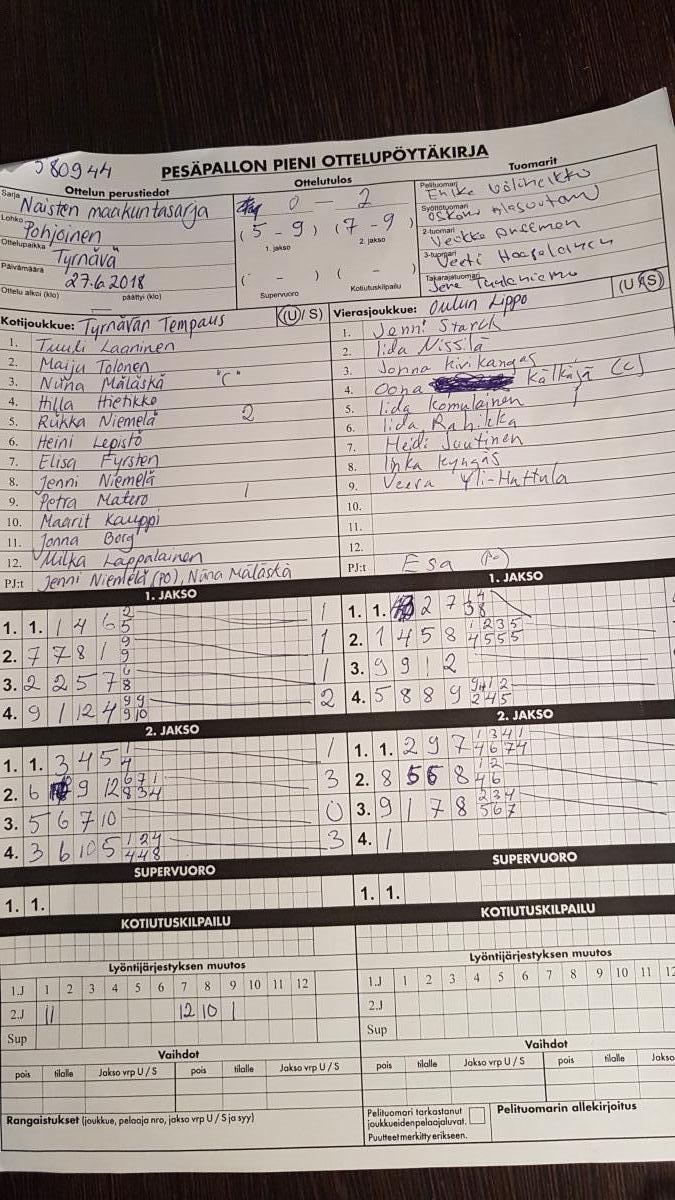 PESÄPALLON PIENI OTTELUPÖYTÄKIRJA
Ottelun perustiedot
Sarja Naisten maakuntasarja
Lohko Pohjoinen
Ottelupaikka Tyrnävä
Päivämäärä 27.6.2018
Ottelu alkoi (klo) päättyi (klo)
Ottelutulos
0 - 2
(5 - 9) (7 - 9)
1. jakso 2. jakso
( - ) ( - )
Supervuoro Kotiutuskilpailu
Tuomarit
Pelituomari
Syöttötuomari
2-tuomari Veikko
3-tuomari Veeti Haapalainen
Takarajatuomari Jere
Kotijoukkue: Tyrnävän Tempaus (U / S)
1. Tuuli Laaninen
2. Maiju Tolonen
3. Niina Mäläskä "C"
4. Hilla Hietikko
5. Riikka Niemelä 2
6. Heini Lepistö
7. Elisa Fyrsten
8. Jenni Niemelä
9. Petra Matero 1
10. Maarit Kauppi
11. Jonna Borg
12. Milka Lappalainen
PJ:t Jenni Niemelä (PO), Niina Mäläskä
Vierasjoukkue: Oulun Lippo (U / S)
1. Jenni Starck
2. Iida Nissilä
3. Jonna Kivikangas
4. Oona Kälkäjä (C)
5. Iida Komulainen
6. Iida Rahikka
7. Heidi Juutinen
8. Inka Kyngäs
9. Veera Yli-Hattula
10.
11.
12.
PJ:t Esa (PO)
1. JAKSO
1. 1. 1 4 6 2/5 1
2. 7 7 8 1 9/9 1
3. 2 2 5 7 6/8 1
4. 9 1 12 4 9 9/9 10 2
2. JAKSO
1. 1. 3 4 5 1/4 1
2. 6 9 12 6 7 1/8 3 4 3
3. 5 6 7 10 0
4. 3 6 10 5 1 2 4/4 4 8 3
SUPERVUORO
1. 1.
KOTIUTUSKILPAILU
Lyöntijärjestyksen muutos
1.J 1 2 3 4 5 6 7 8 9 10 11 12
2.J 11 12 10 1
Sup
Vaihdot
pois tilalle Jakso vrp U / S pois tilalle Jakso vrp U / S
Rangaistukset (joukkue, pelaaja nro, jakso vrp U / S ja syy)
1. JAKSO
1. 1. 2 7 3 4/8
2. 1 4 5 8 1 2 3 5/4 5 5 5
3. 9 9 1 2
4. 5 8 8 9
2. JAKSO
1. 1. 2 9 7 1 3 4 1/4 6 7 4
2. 8 5 6 8 1 2/4 6
3. 9 1 7 8 2 3 4/5 6 7
4. 1
SUPERVUORO
1. 1.
KOTIUTUSKILPAILU
Lyöntijärjestyksen muutos
1.J 1 2 3 4 5 6 7 8 9 10 11 12
2.J
Sup
Vaihdot
pois tilalle Jakso vrp U / S pois tilalle Jakso
Pelituomari tarkastanut
joukkueiden pelaajaluvat.
Puutteet merkitty erikseen.
Pelituomarin allekirjoitus